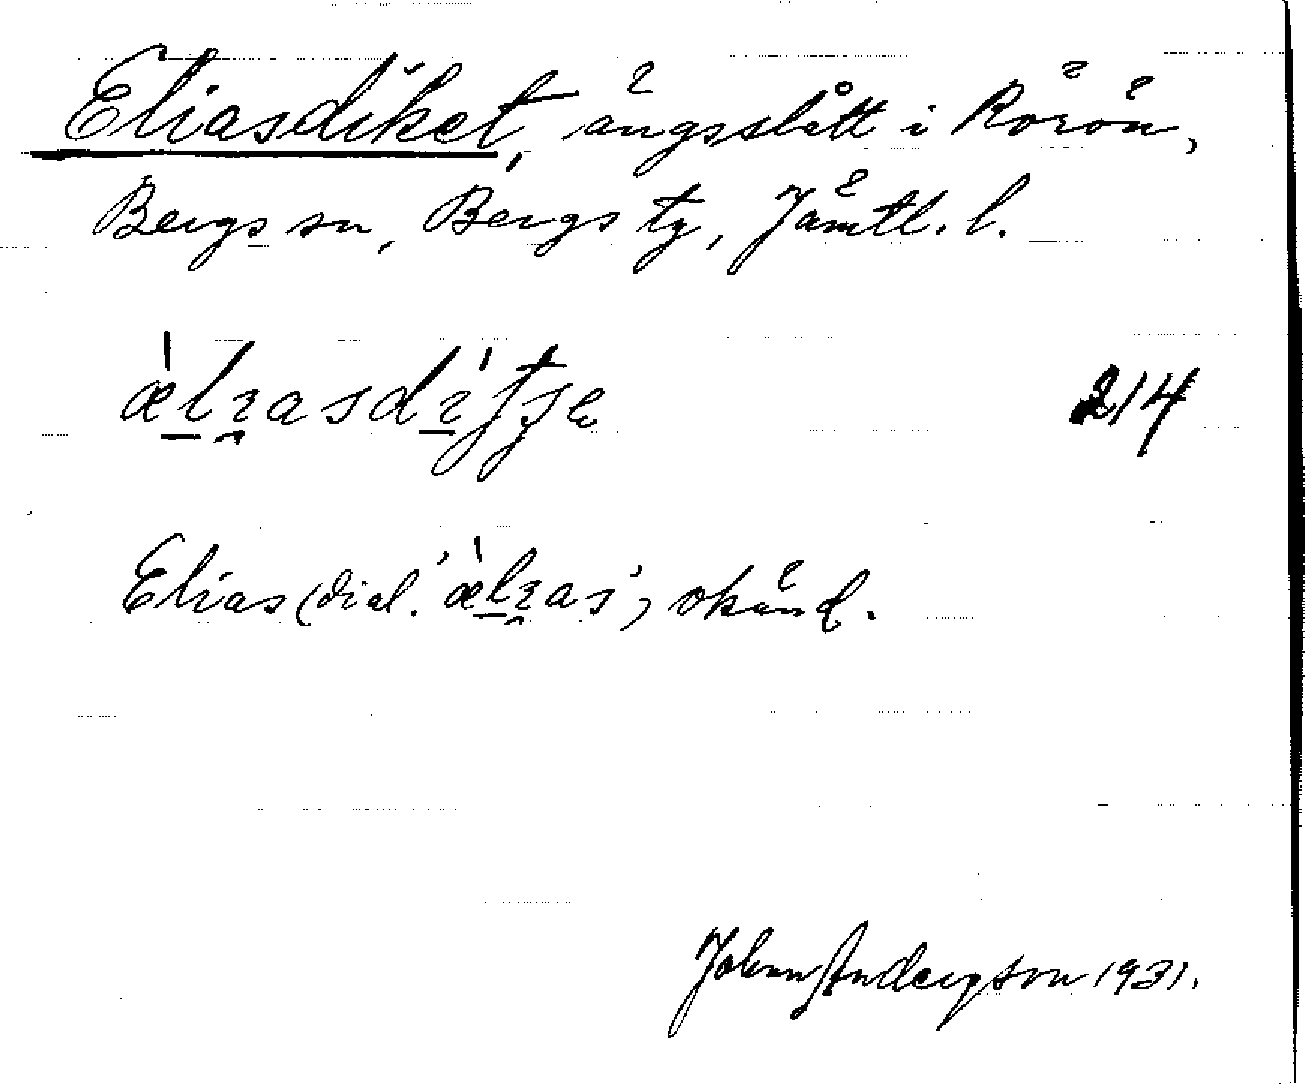 Eliasdiket, ängsslått i Rörön,
Bergs sn, Bergs tg, Jämtl. l.
214
Elias (dial. ), okänd.
Johan Anderson 1931.